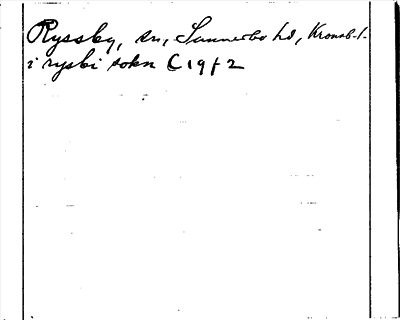 Ryssby, sn, Sunnerbo hd, Kronob. l.
i rysbi sokn C 19 f 2